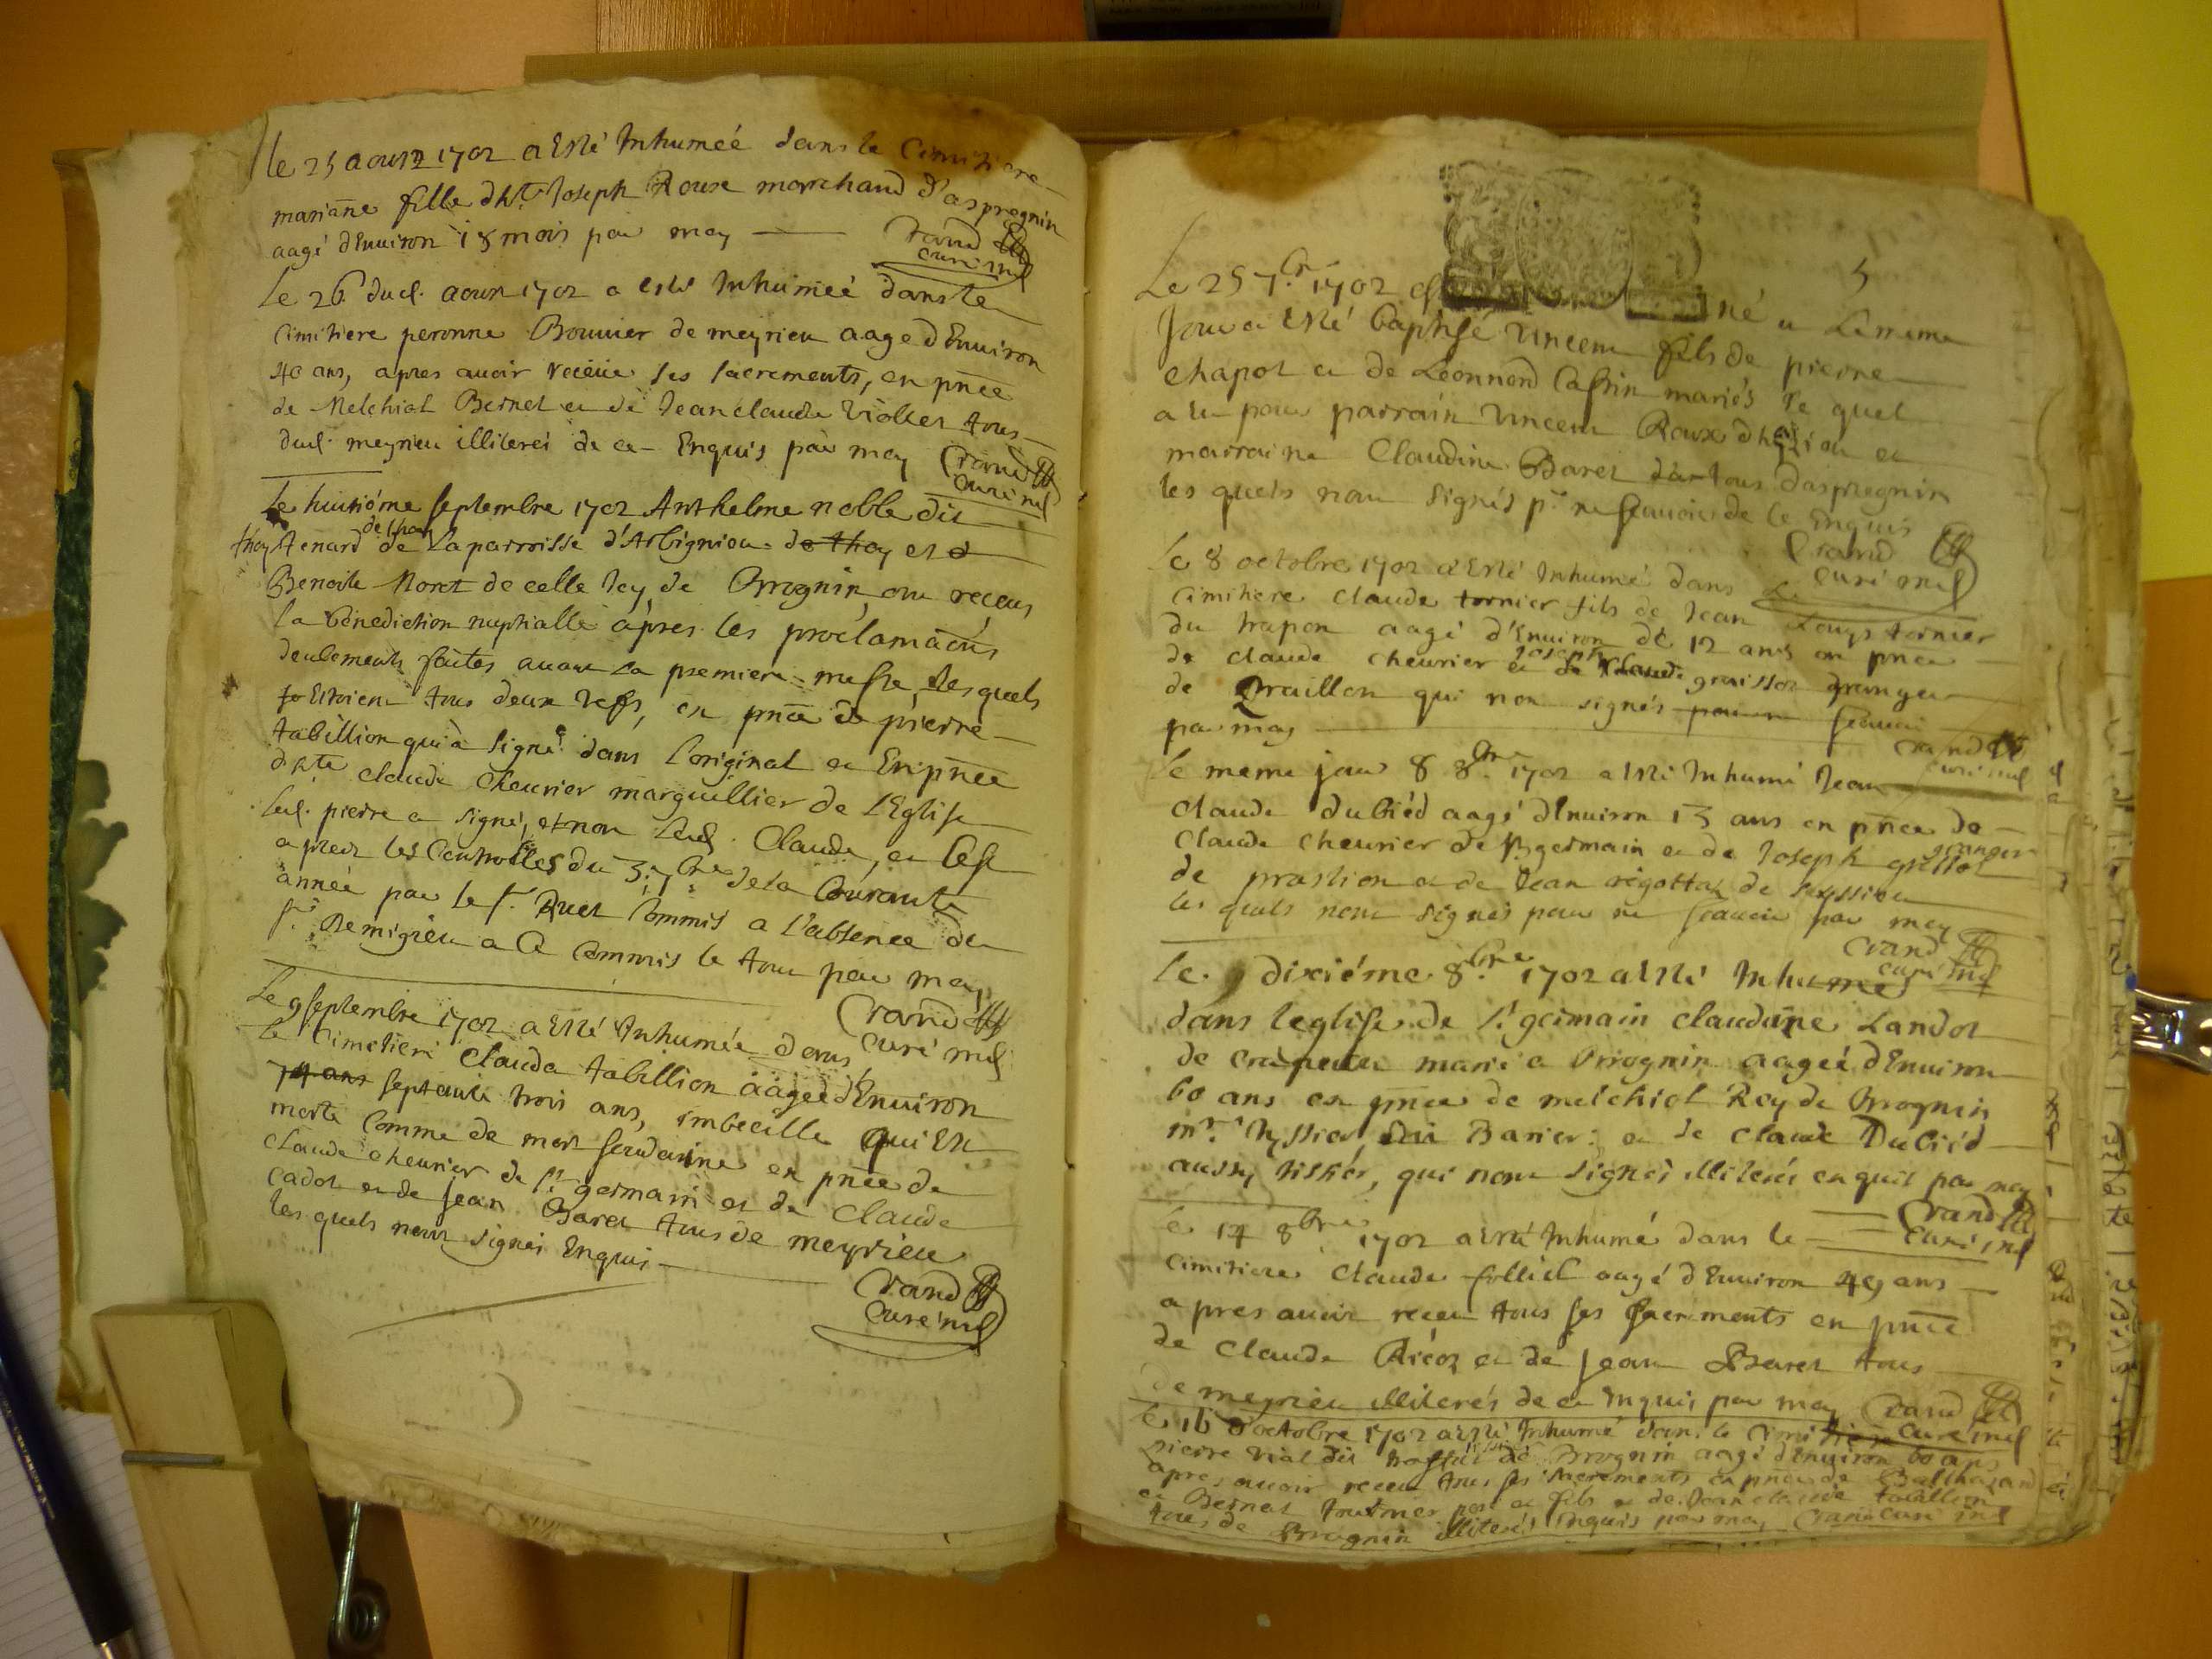 le 25 aoust 1702 a esté Inhumeé dans le Cimitiere
mariañe fille dh.te Joseph Roux marchand d'aspregnin
aagé dEnuiron 18 mois par moy
Crand
curé mel
Le 26 dud. aoust 1702 a esté Inhumeé dans le
Cimitiere peronne Bouuier de meyrieu aage dEnuiron
40 ans, apres auoir receüe ses sacrements, en pñce
de Melchiol Bernet et de Jean claude Viollet tous
dud. meyrieu illiterés de ce Enquis par moy Crand
curé mel
Le huitiéme septembre 1702 Anthelme noble dit
thoy tenard de la parroisse d'Arbignieu de thoy et d
Benoite Moret de celle Icy de Brognin ont receus
la bénediction nuptialle apres les proclamãons
deulements faites auant la premiere messe, lesquels
estoient tous deux vefs, en pñce de pierre
tabillion qui à signé dans l'original et En pñce
dh.te claude cheurier marguillier de l'Eglise
led. pierre a signé, et non led. Claude, et cest
apres les Controlles du 3. 7bre de la Courante
année par le s.r Commis a l'absence du
s.r Demigieu a Ce Commis le tout par moy
Crand
curé mel
Le 9 septembre 1702 a esté Inhumée dans
le Cimetiere Clauda tabillion aageé d'Enuiron
74 ans septante trois ans, imbecille qui Est
morte Comme de mort soudaine en pñce de
claude cheurier de s.t germain et de Claude
cadot et de Jean Baret tous de meyrieu
les quels nont signés Enquis
Crand
Curé mel
5
Le 25 7.br 1702 est né et Le mesme
Jour a esté baptisé Vincent fils de pierre
chapot et de Leonnard Cassin mariés le quel
a eu pour parrain Vincent Roux et
marraine Claudine Baret tous daspregnin
les quels nont signés p.r ne scauoir de ce Enquis
Crand
curé mel
Le 8 octobre 1702 a esté Inhumé dans Le
cimitiere claude tornier fils de Jean Louys tornier
du trapon aagé d'Enuiron de 12 ans en pñce
de claude cheurier et de Joseph claude granger
de Praillon qui non signés pour ne scauoir
par moy
Crand
curé mel
le meme jour 8 8.bre 1702 a esté Inhumé Jean
Claude dubiéd aagé dEnuiron 13 ans en pñce de
Claude cheurier de s.t germain et de Joseph granger
de praslion et de Jean rigottat de seyssieu
les quels nont signés pour ne scauoir par moy
Crand
curé mel
Le 9 dixiéme 8.bre 1702 a esté Inhumeé
dans leglise de s.t germain claudine Landot
de marié a Brognin aageé dEnuiron
60 ans en pñce de melchiol Rey de Brognin
m.re tyssier, dit Barier et de claude Dubiéd
aussy tissiér, qui nont signés illiterés enquis par moy
Crand
Curé mel
Le 14 8bre 1702 a esté Inhumé dans le
cimitiere Claude folliet aagé dEnuiron 45 ans
apres auoir receu tous ses sacrements en pñce
de claude et de Jean Baret tous
de meyrieu illiterés de ce Inquis par moy Crand
curé mel
le 16 octobre 1702 a esté Inhumé dans le Cimitiere
pierre Vial dit de Brognin aagé dEnuiron 60 ans
apres auoir receu tous ses sacrements en pñce de Balthazard
et Bernat fournier pere et fils et de Jean claude tabillion
tous de Brognin illiterés Inquis par moy Crand curé mel